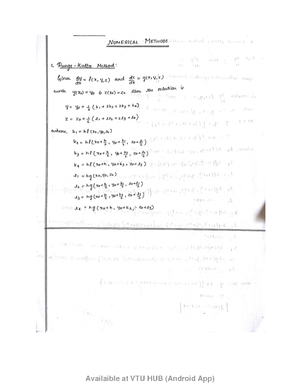 NUMERICAL METHODS
1. Runge-Kutta Method:
Given dy/dx = f(x, y, z) and dz/dx = g(x, y, z)
with y(x0) = y0 & z(x0) = z0 then the solution is
y = y0 + 1/6 (k1 + 2k2 + 2k3 + k4)
z = z0 + 1/6 (l1 + 2l2 + 2l3 + l4)
where, k1 = hf(x0, y0, z0)
k2 = hf(x0 + h/2, y0 + k1/2, z0 + l1/2)
k3 = hf(x0 + h/2, y0 + k2/2, z0 + l2/2)
k4 = hf(x0 + h, y0 + k3, z0 + l3)
l1 = hg(x0, y0, z0)
l2 = hg(x0 + h/2, y0 + k1/2, z0 + l1/2)
l3 = hg(x0 + h/2, y0 + k2/2, z0 + l2/2)
l4 = hg(x0 + h, y0 + k3, z0 + l3)
Available at VTU HUB (Android App)